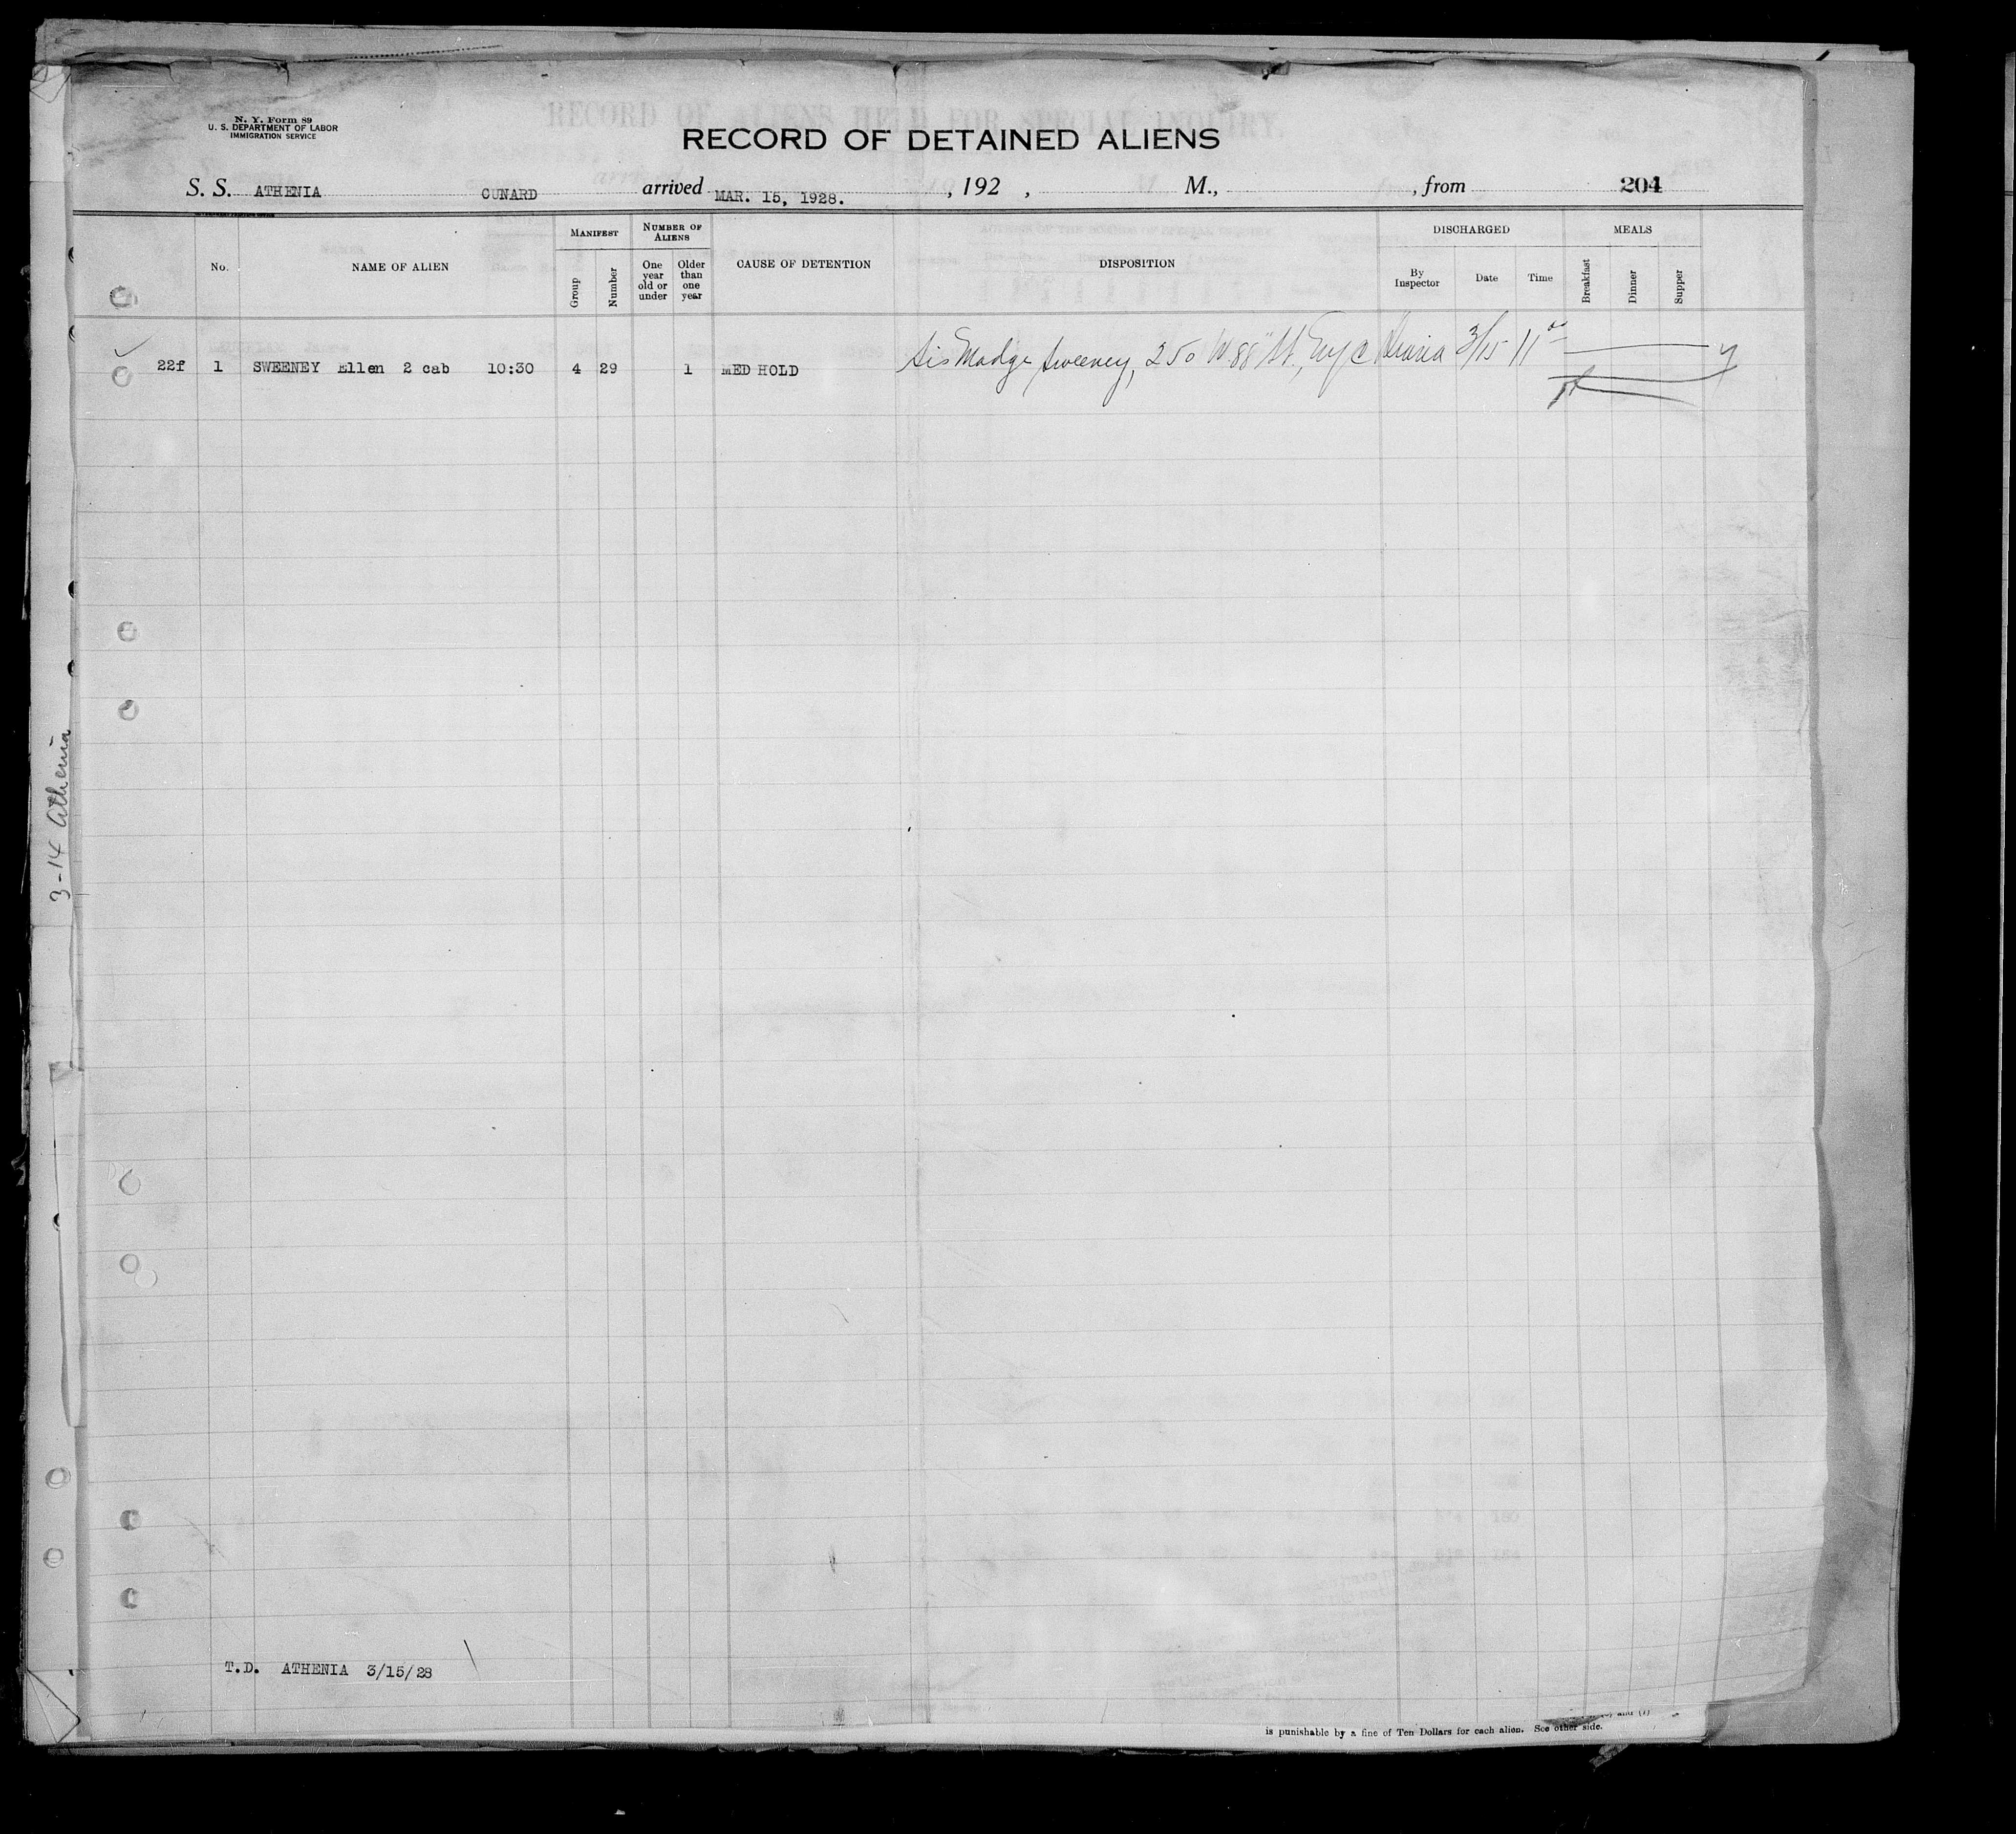 N. Y. Form 89
U. S. DEPARTMENT OF LABOR
IMMIGRATION SERVICE
RECORD OF ALIENS HELD FOR SPECIAL INQUIRY.
RECORD OF DETAINED ALIENS
S. S. ATHENIA CUNARD arrived MAR. 15, 1928. , 192 , M., , from 204
No. NAME OF ALIEN MANIFEST Group Number NUMBER OF ALIENS One year old or under Older than one year CAUSE OF DETENTION DISPOSITION DISCHARGED By Inspector Date Time MEALS Breakfast Dinner Supper
22f 1 SWEENEY Ellen 2 cab 10:30 4 29 1 MED HOLD Sis Madge Sweeney, 250 W. 88" St., NYC 3/15 11 00
3-14 Athenia
T.D. ATHENIA 3/15/28
and (7)
is punishable by a fine of Ten Dollars for each alien. See other side.